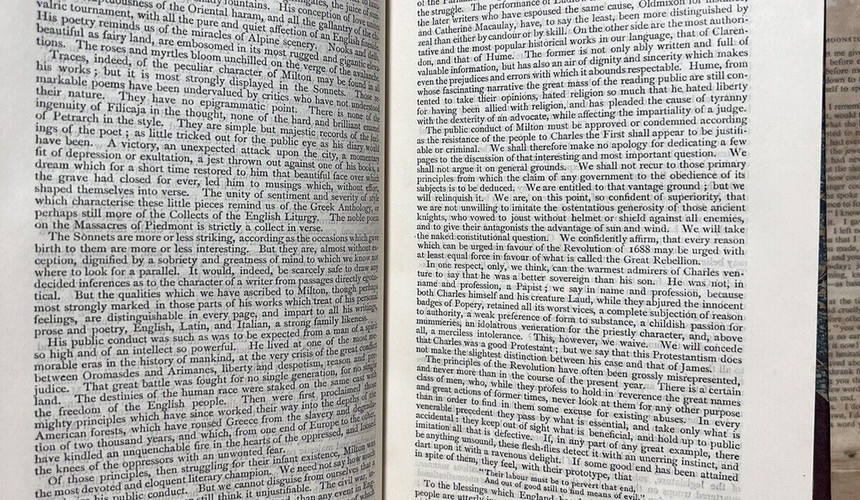 valric tournament, with all the pure and quiet affection of an English fireside.
His poetry reminds us of the miracles of Alpine scenery. Nooks and dells,
beautiful as fairy land, are embosomed in its most rugged and gigantic eleva-
tions. The roses and myrtles bloom unchilled on the verge of the avalanche.
Traces, indeed, of the peculiar character of Milton may be found in all
his works; but it is most strongly displayed in the Sonnets. Those re-
markable poems have been undervalued by critics who have not understood
their nature. They have no epigrammatic point. There is none of the
ingenuity of Filicaja in the thought, none of the hard and brilliant enamel
of Petrarch in the style. They are simple but majestic records of the feel-
ings of the poet; as little tricked out for the public eye as his diary would
have been. A victory, an unexpected attack upon the city, a momentary
fit of depression or exultation, a jest thrown out against one of his books, a
dream which for a short time restored to him that beautiful face over which
the grave had closed for ever, led him to musings which, without effort,
shaped themselves into verse. The unity of sentiment and severity of style
which characterise these little pieces remind us of the Greek Anthology, or
perhaps still more of the Collects of the English Liturgy. The noble poem
on the Massacres of Piedmont is strictly a collect in verse.
The Sonnets are more or less striking, according as the occasions which gave
birth to them are more or less interesting. But they are, almost without ex-
ception, dignified by a sobriety and greatness of mind to which we know not
where to look for a parallel. It would, indeed, be scarcely safe to draw any
decided inferences as to the character of a writer from passages directly egotis-
tical. But the qualities which we have ascribed to Milton, though perhaps
most strongly marked in those parts of his works which treat of his personal
feelings, are distinguishable in every page, and impart to all his writings,
prose and poetry, English, Latin, and Italian, a strong family likeness.
His public conduct was such as was to be expected from a man of a spirit
so high and of an intellect so powerful. He lived at one of the most me-
morable eras in the history of mankind, at the very crisis of the great conflict
between Oromasdes and Arimanes, liberty and despotism, reason and pre-
judice. That great battle was fought for no single generation, for no single
land. The destinies of the human race were staked on the same cast with
the freedom of the English people. Then were first proclaimed those
mighty principles which have since worked their way into the depths of the
American forests, which have roused Greece from the slavery and degrada-
tion of two thousand years, and which, from one end of Europe to the other,
have kindled an unquenchable fire in the hearts of the oppressed, and loosed
the knees of the oppressors with an unwonted fear.
Of those principles, then struggling for their infant existence, Milton was
the most devoted and eloquent literary champion. We need not say how much
his public conduct. But we cannot disguise from ourselves that
still think it unjustifiable. The civil war,
than any event in Eng-
the struggle. The performance of
the later writers who have espoused the same cause, Oldmixon for instance,
and Catherine Macaulay, have, to say the least, been more distinguished by
zeal than either by candour or by skill. On the other side are the most authori-
tative and the most popular historical works in our language, that of Claren-
don, and that of Hume. The former is not only ably written and full of
valuable information, but has also an air of dignity and sincerity which makes
even the prejudices and errors with which it abounds respectable. Hume, from
whose fascinating narrative the great mass of the reading public are still con-
tented to take their opinions, hated religion so much that he hated liberty
for having been allied with religion, and has pleaded the cause of tyranny
with the dexterity of an advocate, while affecting the impartiality of a judge.
The public conduct of Milton must be approved or condemned according
as the resistance of the people to Charles the First shall appear to be justifi-
able or criminal. We shall therefore make no apology for dedicating a few
pages to the discussion of that interesting and most important question. We
shall not argue it on general grounds. We shall not recur to those primary
principles from which the claim of any government to the obedience of its
subjects is to be deduced. We are entitled to that vantage ground; but we
will relinquish it. We are, on this point, so confident of superiority, that
we are not unwilling to imitate the ostentatious generosity of those ancient
knights, who vowed to joust without helmet or shield against all enemies,
and to give their antagonists the advantage of sun and wind. We will take
the naked constitutional question. We confidently affirm, that every reason
which can be urged in favour of the Revolution of 1688 may be urged with
at least equal force in favour of what is called the Great Rebellion.
In one respect, only, we think, can the warmest admirers of Charles ven-
ture to say that he was a better sovereign than his son. He was not, in
name and profession, a Papist; we say in name and profession, because
both Charles himself and his creature Laud, while they abjured the innocent
badges of Popery, retained all its worst vices, a complete subjection of reason
to authority, a weak preference of form to substance, a childish passion for
mummeries, an idolatrous veneration for the priestly character, and, above
all, a merciless intolerance. This, however, we waive. We will concede
that Charles was a good Protestant; but we say that this Protestantism does
not make the slightest distinction between his case and that of James.
The principles of the Revolution have often been grossly misrepresented,
and never more than in the course of the present year. There is a certain
class of men, who, while they profess to hold in reverence the great names
and great actions of former times, never look at them for any other purpose
than in order to find in them some excuse for existing abuses. In every
venerable precedent they pass by what is essential, and take only what is
accidental: they keep out of sight what is beneficial, and hold up to public
imitation all that is defective. If, in any part of any great example, there
be anything unsound, these flesh-flies detect it with an unerring instinct, and
dart upon it with a ravenous delight. If some good end has been attained
in spite of them, they feel, with their prototype, that
"Their labour must be to pervert that end,
And out of good still to find means of evil."
To the blessings which England
people are utterly